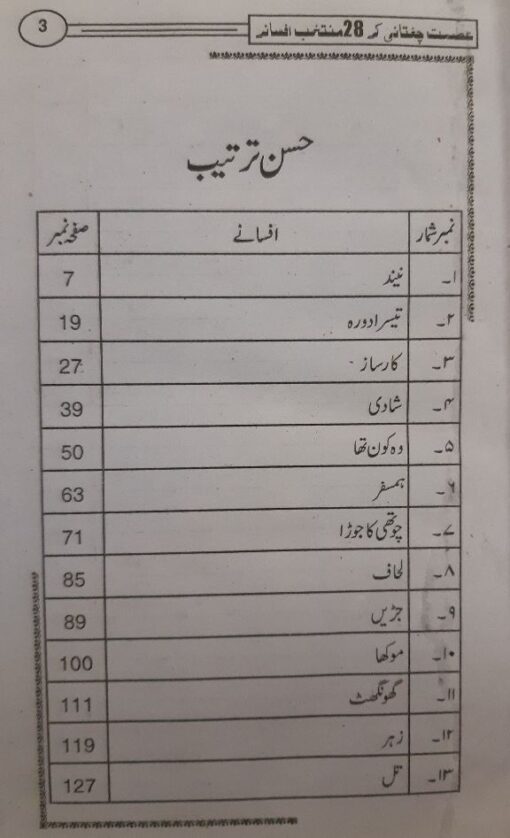 عصمت چغتائی کے 28 منتخب افسانے 3
حسن ترتیب
نمبر شمار افسانے صفحہ نمبر
۱۔ نیند 7
۲۔ تیسرا دورہ 19
۳۔ کارساز 27
۴۔ شادی 39
۵۔ وہ کون تھا 50
۶۔ ہمسفر 63
۷۔ چوتھی کا جوڑا 71
۸۔ لحاف 85
۹۔ جڑیں 89
۱۰۔ موکھا 100
۱۱۔ گھونگھٹ 111
۱۲۔ زہر 119
۱۳۔ تل 127